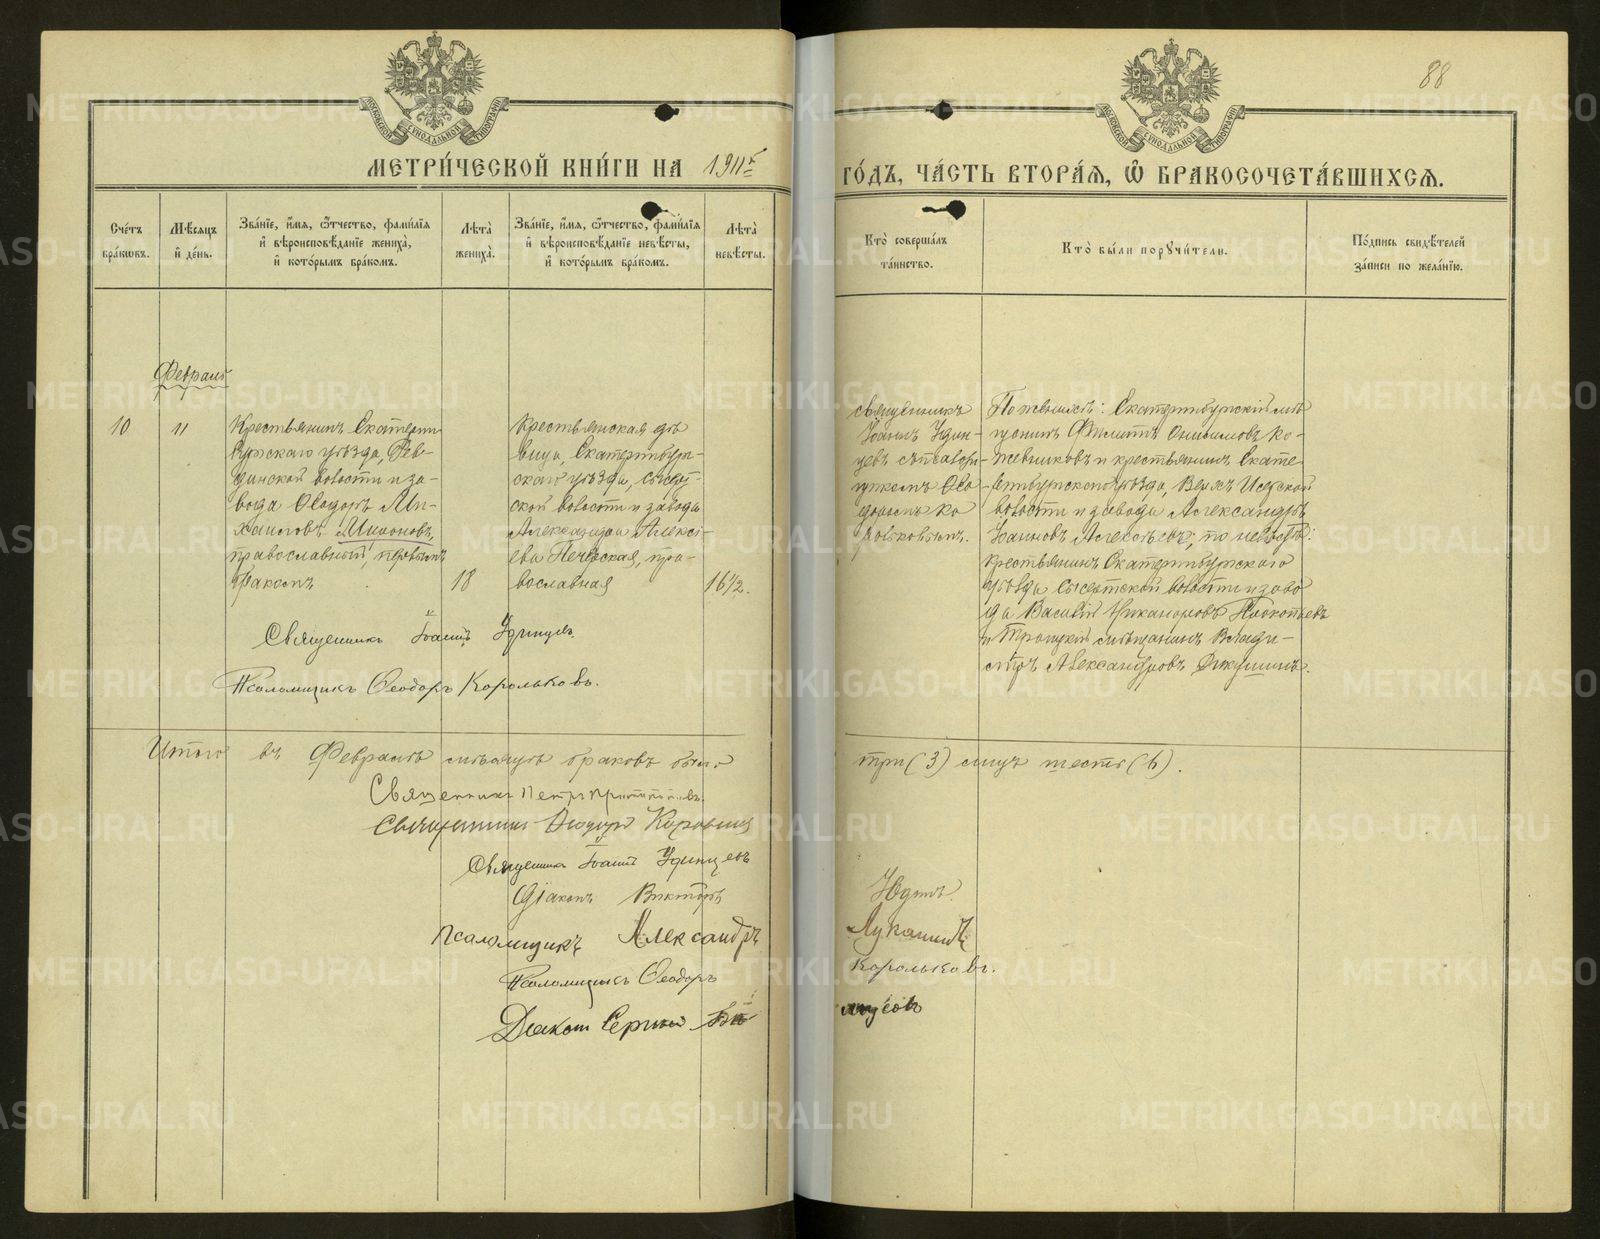 88
МЕТРИ́ЧЕСКОЙ КНИ́ГИ НА 1911 ГО́ДЪ, ЧА́СТЬ ВТОРА́Я, Ѡ БРАКОСОЧЕТА́ВШИХСЯ.
Сче́тъ бра́кѡвъ.
Мѣ́сяцъ и де́нь.
Зва́нїе, и́мя, ѻ́тчество, фами́лїя и вѣроисповѣ́данїе жениха̀, и кото́рымъ бра́комъ.
Лѣ́та жениха̀.
Зва́нїе, и́мя, ѻ́тчество, фами́лїя и вѣроисповѣ́данїе невѣ́сты, и кото́рымъ бра́комъ.
Лѣ́та невѣ́сты.
Кто̀ соверша́лъ та́инство.
Кто̀ бы́ли поручи́тели.
По́дпись свидѣ́телей за́писи по жела́нїю.
Февраль
10
11
Крестьянинъ Екатерин
бургскаго уѣзда, Рев-
динской волости и за-
вода Ѳеодоръ Ми-
хаиловъ
православный, первымъ
бракомъ
18
Крестьянская дѣ
вица, Екатеринбург-
скаго уѣзда, Сысерт-
ской волости и завода
Александра Алексѣ-
ева Печерская, пра-
вославная
16½.
Священникъ
Іоаннъ Удин-
цевъ съ псаломщи-
комъ Ѳео
доромъ Ко
рольковымъ.
По женихѣ: Екатеринбургскій мѣ
щанинъ Филиппъ Онисимовъ Ко-
жевниковъ и крестьянинъ Екате
ринбургскаго уѣзда, Верхъ Исетской
волости и завода Александръ
Іоанновъ по невѣстѣ:
крестьянинъ Екатеринбургскаго
уѣзда Сысертской волости и заво
да Василій Никаноровъ Прокопьевъ
и Троицкій мѣщанинъ Влади-
міръ Александровъ
Священникъ Іоаннъ Удинцевъ.
Псаломщикъ Ѳеодоръ Корольковъ.
Итого въ Февралѣ мѣсяцѣ браковъ было три (3) лицъ шесть (6).
Священникъ Петръ
Священникъ Ѳеодоръ Коровинъ
Священникъ Іоаннъ Удинцевъ
Діаконъ Викторъ Юдинъ.
Псаломщикъ Александръ Луканинъ
Псаломщикъ Ѳеодоръ Корольковъ.
Діаконъ Сергій
METRIKI.GASO-URAL.RU